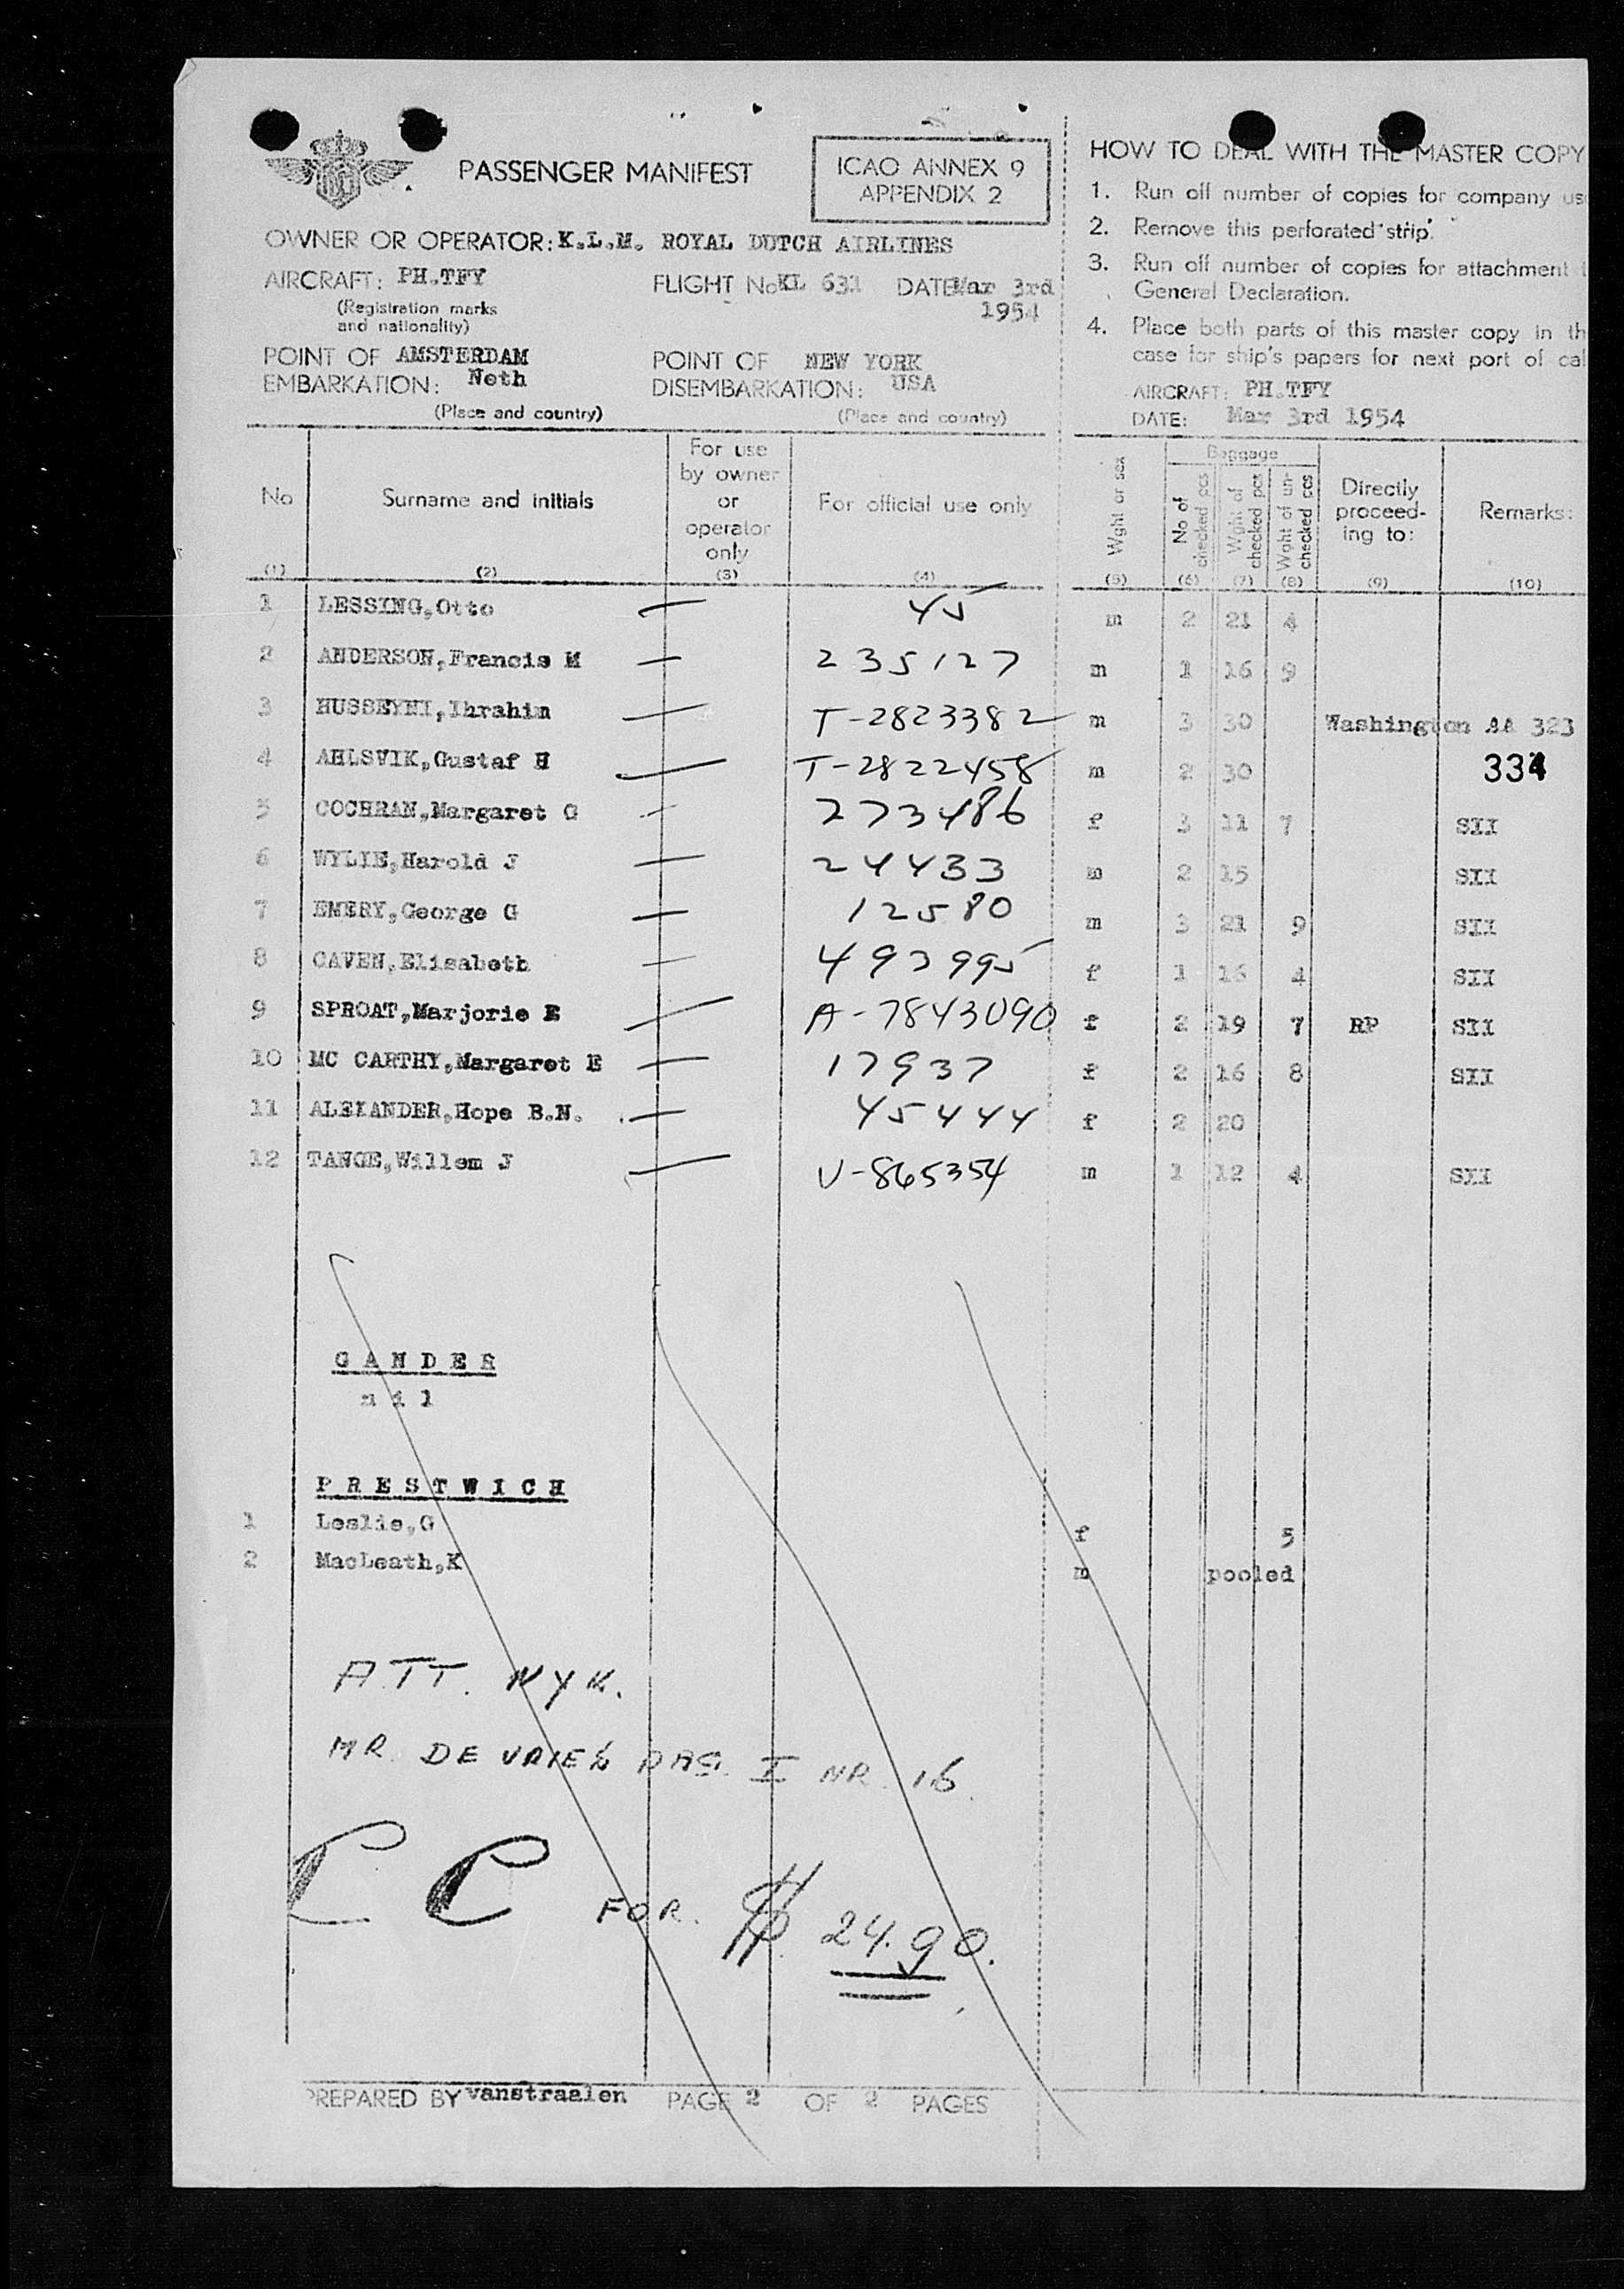 PASSENGER MANIFEST
ICAO ANNEX 9
APPENDIX 2
OWNER OR OPERATOR: K.L.M. ROYAL DUTCH AIRLINES
AIRCRAFT: PH.TFY
(Registration marks
and nationality)
FLIGHT No KL 631 DATE Mar 3rd
1954
POINT OF EMBARKATION: AMSTERDAM
Neth
(Place and country)
POINT OF DISEMBARKATION: NEW YORK
USA
(Place and country)
HOW TO DEAL WITH THE MASTER COPY
1. Run off number of copies for company us
2. Remove this perforated strip.
3. Run off number of copies for attachment
General Declaration.
4. Place both parts of this master copy in th
case for ship's papers for next port of cal
AIRCRAFT: PH.TFY
DATE: Mar 3rd 1954
No (1)
Surname and initials (2)
For use by owner or operator only (3)
For official use only (4)
Wght or sex (5)
Baggage
No of checked pcs (6)
Wght of checked pcs (7)
Wght of un-checked pcs (8)
Directly proceed-ing to: (9)
Remarks: (10)
1 LESSING,Otto 45 m 2 21 4
2 ANDERSON,Francis M 235127 m 1 16 9
3 HUSSEYNI,Ihrahim T-2823382 m 3 30 Washington AA 323
4 AHLSVIK,Gustaf H T-2822458 m 2 30 334
5 COCHRAN,Margaret G 273486 f 3 11 7 SII
6 WYLIE,Harold J 24433 m 2 15 SII
7 EMERY,George G 12580 m 3 21 9 SII
8 CAVEN,Elisabeth 493995 f 1 16 4 SII
9 SPROAT,Marjorie E A-7843090 f 2 19 7 RP SII
10 MC CARTHY,Margaret E 17937 f 2 16 8 SII
11 ALEXANDER,Hope B.N. 45444 f 2 20
12 TANGE,Willem J V-865354 m 1 12 4 SII
GANDER
nil
PRESTWICH
1 Leslie,G f 5
2 MacLeath,K m pooled
ATT. NYK.
MR. DE VRIES I NR. 16.
CC FOR. $ 24.90.
PREPARED BY vanstraalen PAGE 2 OF 2 PAGES